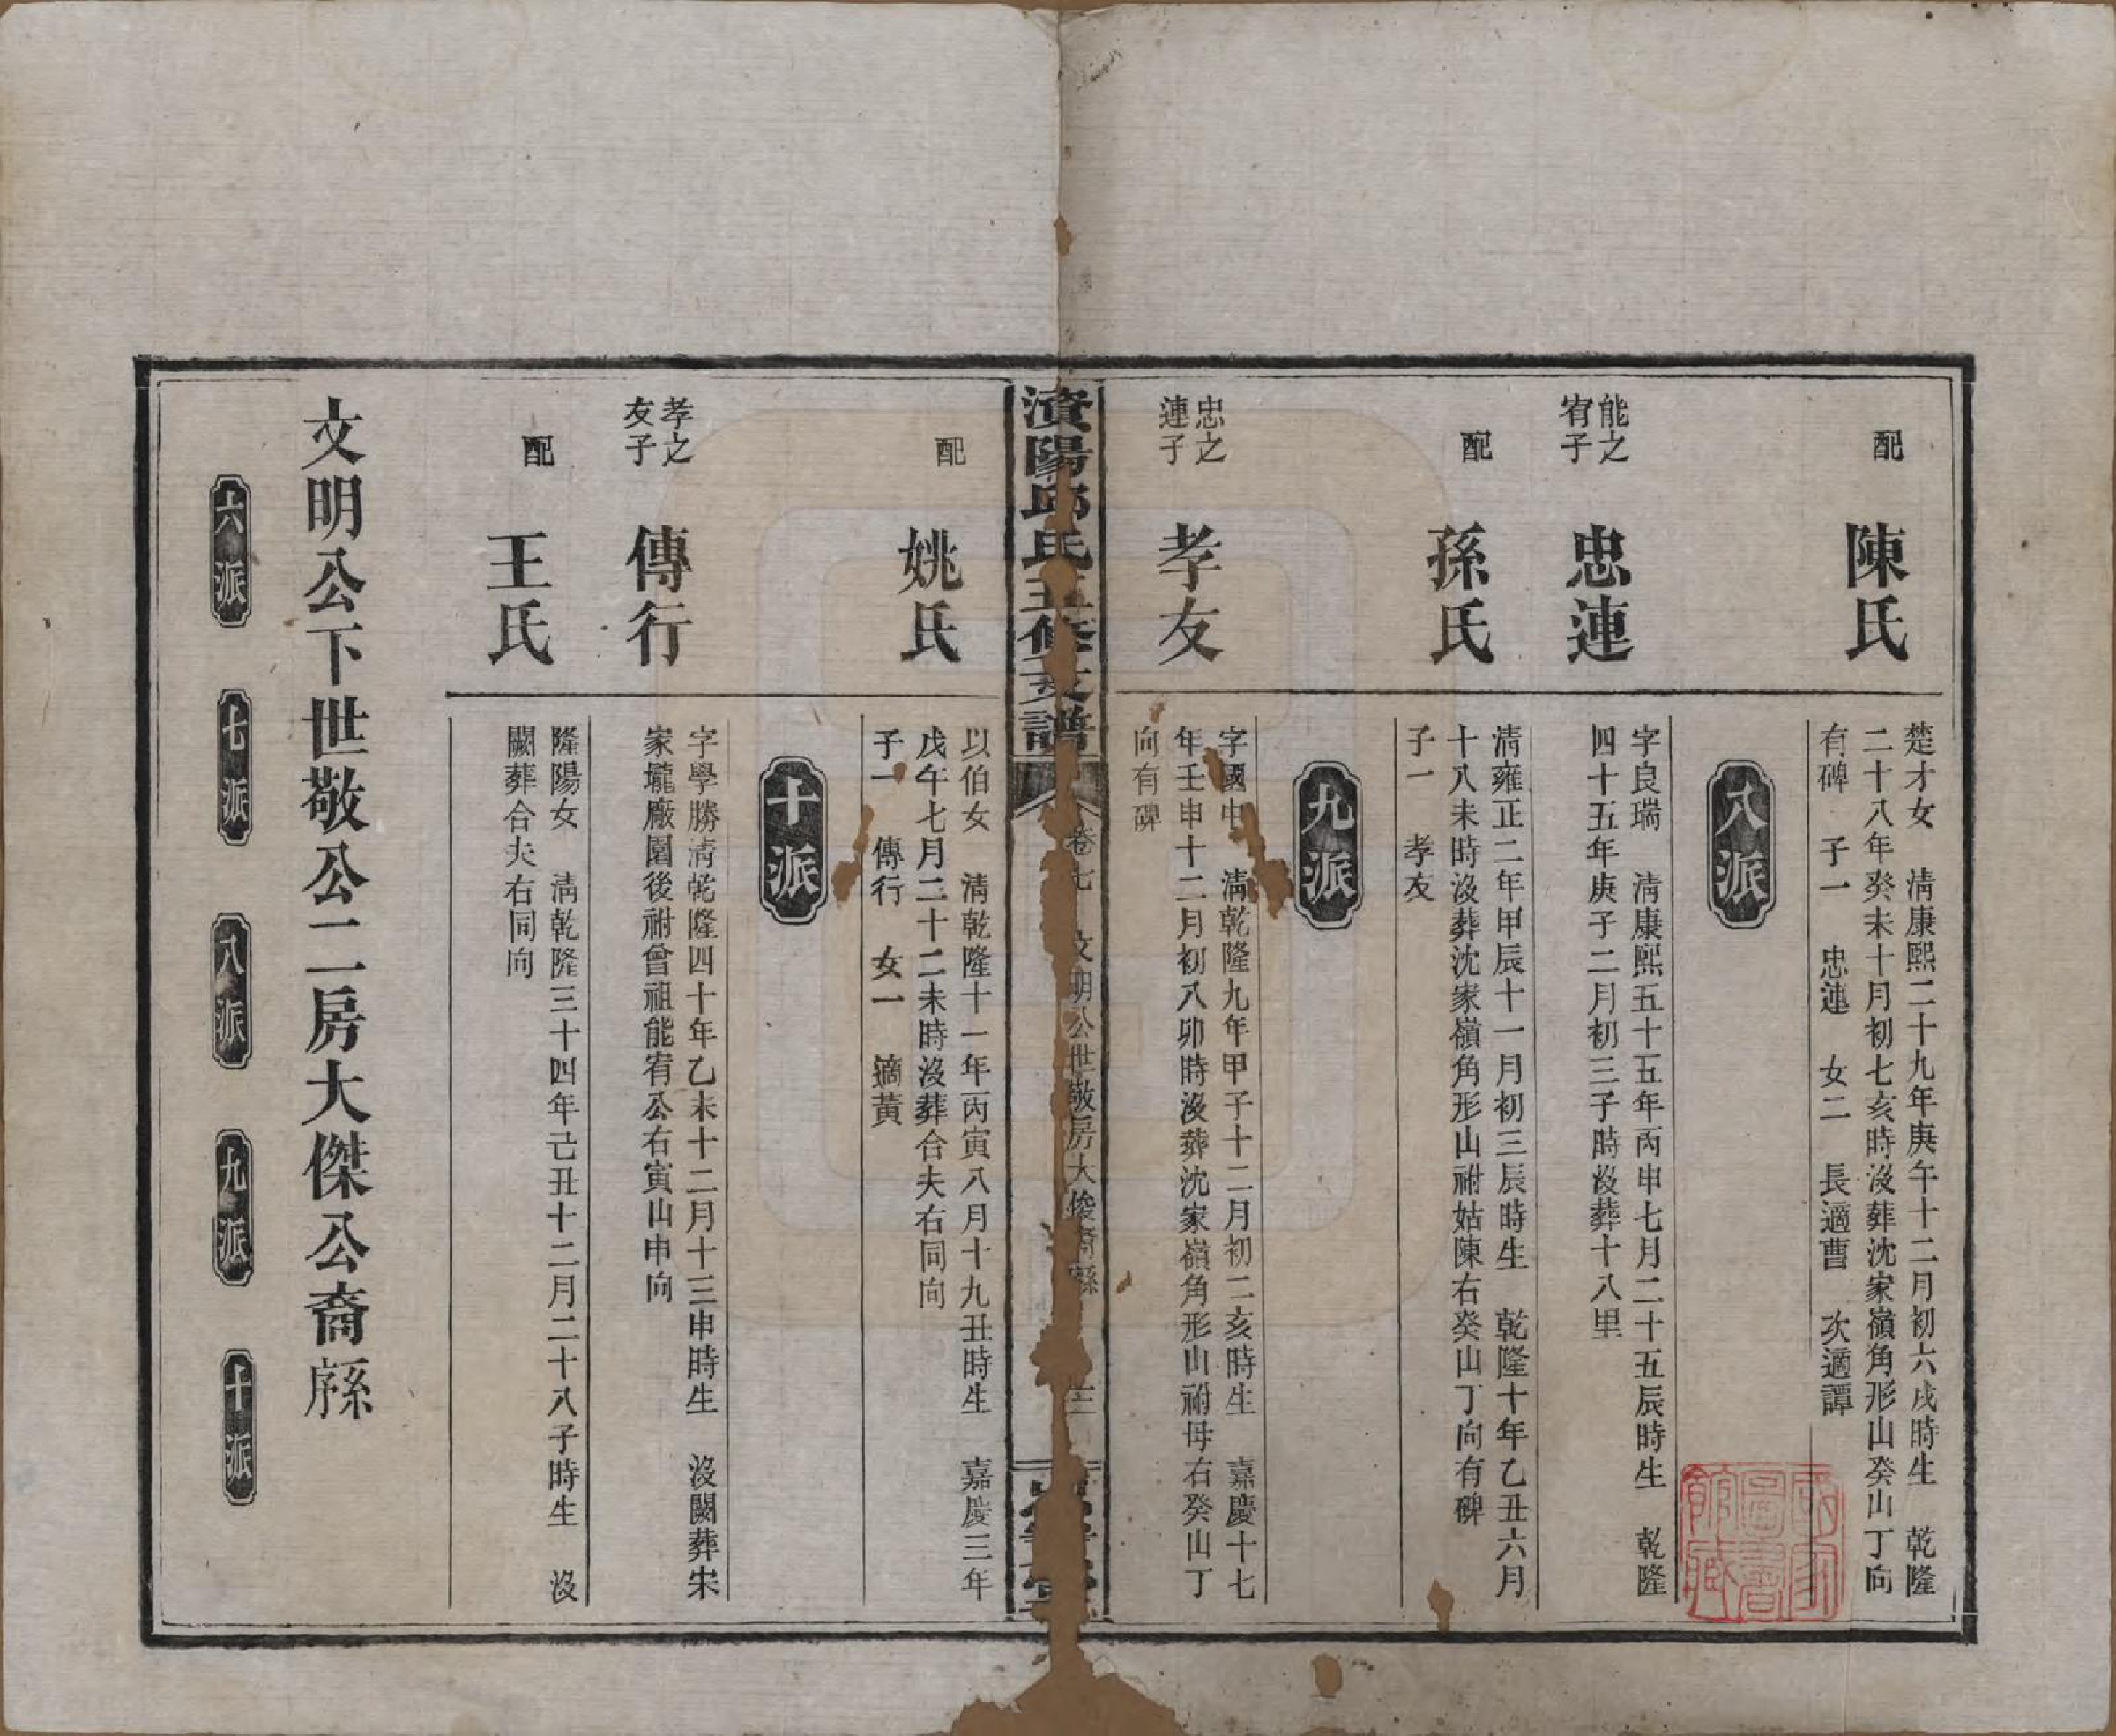 配　陳氏
楚才女　清康熙二十九年庚午十二月初六戌時生　乾隆
二十八年癸未十月初七亥時沒葬沈家嶺角形山癸山丁向
有碑　子一　忠連　女二　長適曹　次適譚
八派
能之
宥子
忠連
字良瑞　清康熙五十五年丙申七月二十五辰時生　乾隆
四十五年庚子二月初三子時沒葬十八里
配　孫氏
清雍正二年甲辰十一月初三辰時生　乾隆十年乙丑六月
十八未時沒葬沈家嶺角形山祔姑陳右癸山丁向有碑
子一　孝友
九派
忠之
連子
孝友
字國中　清乾隆九年甲子十二月初二亥時生　嘉慶十七
年壬申十二月初八卯時沒葬沈家嶺角形山祔母右癸山丁
向有碑
濱陽邱氏五修支譜
卷七　文明公世敬房大俊裔縣　三
配　姚氏
以伯女　清乾隆十一年丙寅八月十九丑時生　嘉慶三年
戊午七月二十二未時沒葬合夫右同向
子一　傳行　女一　適黃
十派
孝之
友子
傳行
字學勝清乾隆四十年乙未十二月十三申時生　沒闕葬朱
家壠廠園後祔曾祖能宥公右寅山申向
配　王氏
隆陽女　清乾隆三十四年己丑十二月二十八子時生　沒
闕葬合夫右同向
文明公下世敬公二房大傑公裔縣
六派　七派　八派　九派　十派
國家
圖書
館藏